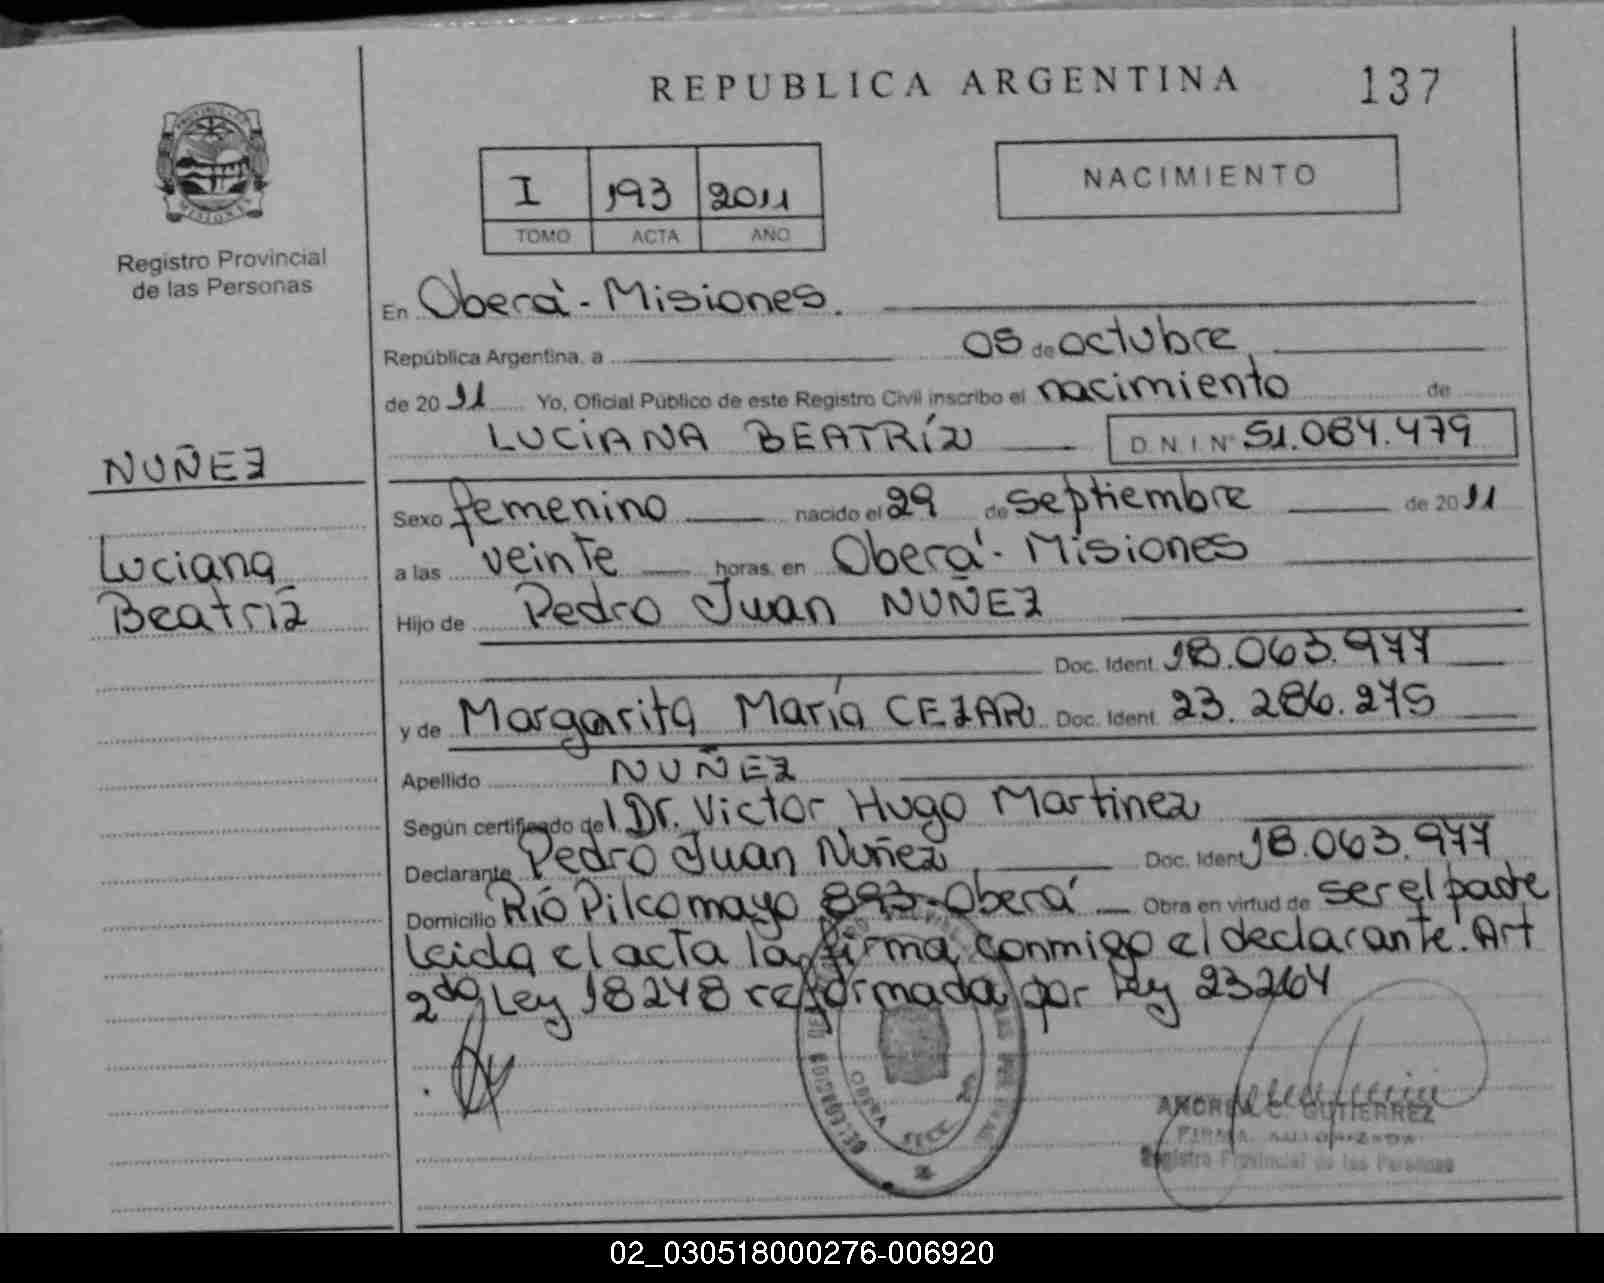 REPUBLICA ARGENTINA 137
PROVINCIA DE
MISIONES
I 193 2011
TOMO ACTA AÑO
NACIMIENTO
Registro Provincial
de las Personas
En Oberá - Misiones.
República Argentina, a 05 de octubre
de 2011 Yo, Oficial Público de este Registro Civil inscribo el nacimiento de
LUCIANA BEATRÍZ D.N.I. Nº 51.084.479
NUÑEZ
Sexo femenino nacido el 29 de septiembre de 2011
Luciana
Beatriz
a las veinte horas, en Oberá - Misiones
Hijo de Pedro Juan NUÑEZ
Doc. Ident. 18.063.977
y de Margarita María CEZAR Doc. Ident. 23.286.275
Apellido NUÑEZ
Según certificado del Dr. Victor Hugo Martinez
Declarante Pedro Juan Nuñez Doc. Ident 18.063.977
Domicilio Río Pilcomayo 893 - Oberá Obra en virtud de ser el padre
leida el acta la firma conmigo el declarante. Art
2do Ley 18248 reformada por Ley 23264
OBERA
ANDREA C. GUTIERREZ
FIRMA AUTORIZADA
Registro Provincial de las Personas
02_030518000276-006920